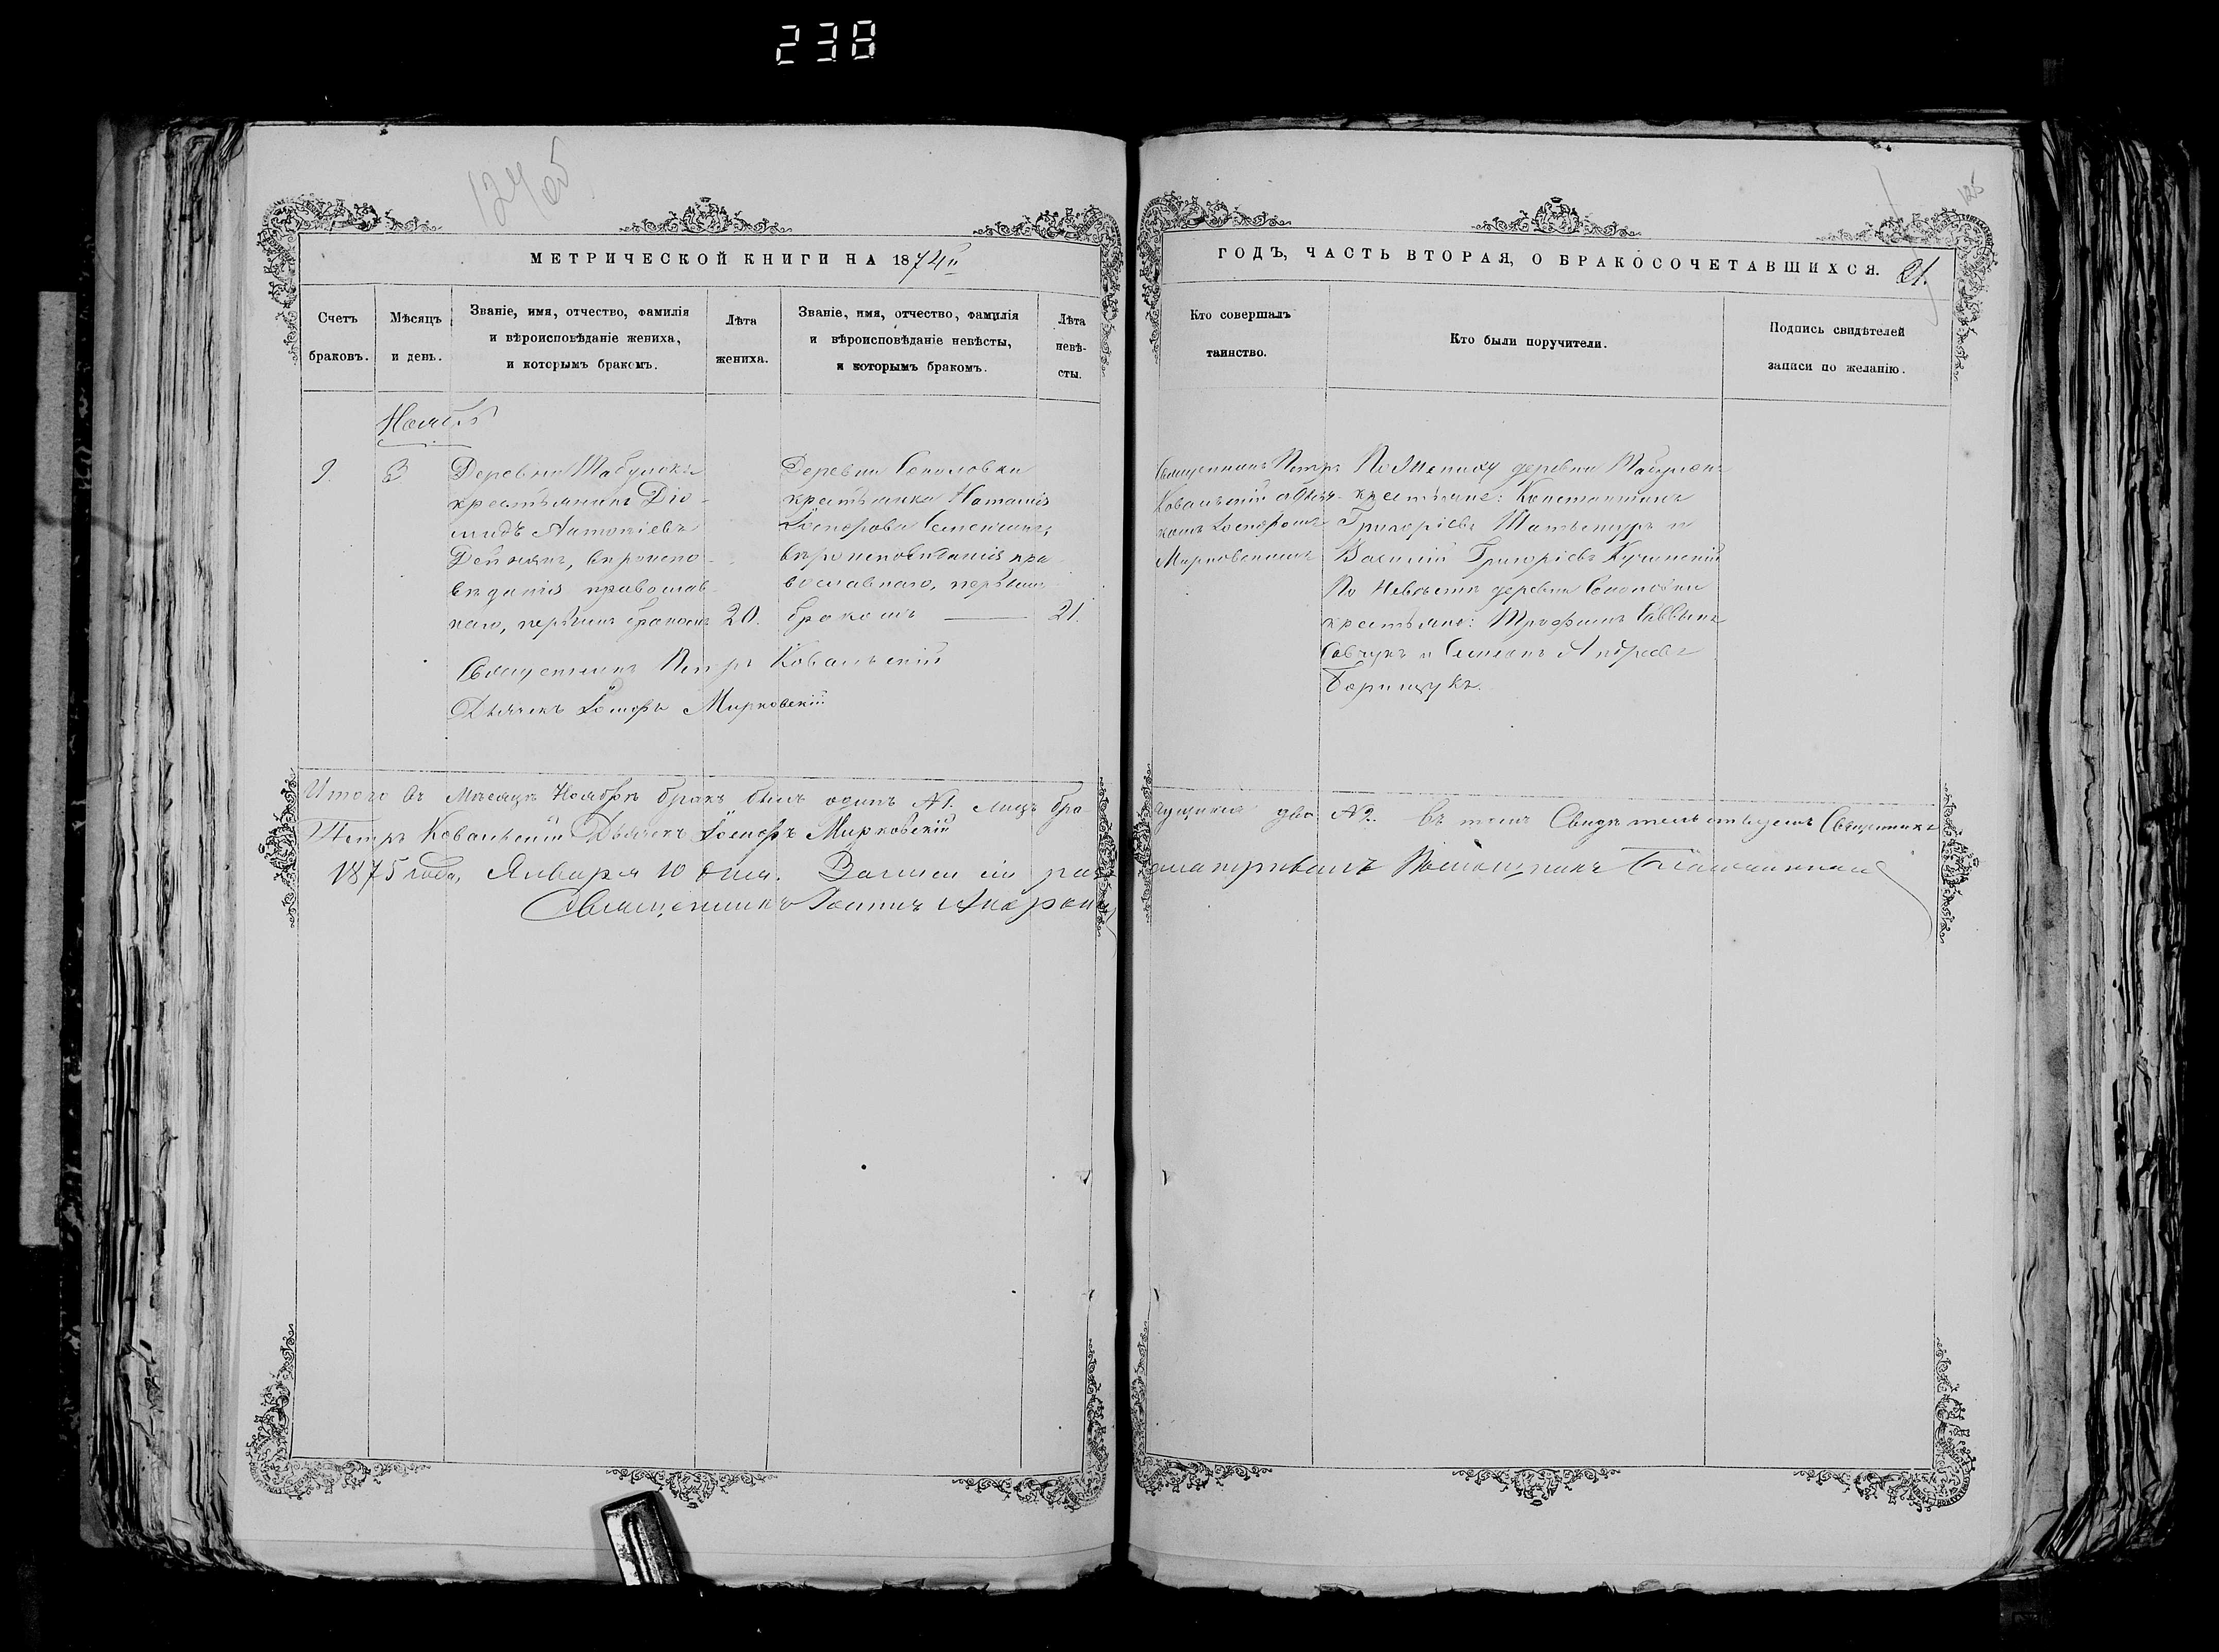 238
124об
125
МЕТРИЧЕСКОЙ КНИГИ НА 1874й
ГОДЪ, ЧАСТЬ ВТОРАЯ, О БРАКОСОЧЕТАВШИХСЯ.
21.
Счетъ
браковъ.
Мѣсяцъ
и день.
Званіе, имя, отчество, фамилія
и вѣроисповѣданіе жениха,
и которымъ бракомъ.
Лѣта
жениха.
Званіе, имя, отчество, фамилія
и вѣроисповѣданіе невѣсты,
и которымъ бракомъ.
Лѣта
невѣ-
сты.
Кто совершалъ
таинство.
Кто были поручители.
Подпись свидѣтелей
записи по желанію.
Ноябрь
9.
3
Деревни
крестьянинъ Діо-
мидъ Антоніевъ
вѣроиспо-
вѣданія православ-
наго, первымъ бракомъ
20.
Деревни Соколовки
крестьянка Наталія
вѣроисповѣданія пра-
вославнаго, первымъ
бракомъ
21.
Священникъ Петръ
Ковальскій съ дьяч-
комъ
Мирковскимъ
По Жениху деревни
крестьяне: Константинъ
Григоріевъ и
Василій Григоріевъ Кучинскій
По Невѣстѣ деревни Соколовки
крестьяне: Трофимъ Саввинъ
Савчукъ и Симеонъ Андреевъ
Борищукъ.
Священникъ Петръ Ковальскій
Дьячекъ Мирковскій
Итого въ Мѣсяцѣ Ноябрѣ бракъ былъ одинъ №1. лицъ бра-
чущихся два №2. Въ томъ Свидѣтельствуемъ Священникъ
Петръ Ковальскій Дьячекъ Мирковскій
1875 года, Января 10 дня. Записи сіи раз-
сматривалъ
Священникъ